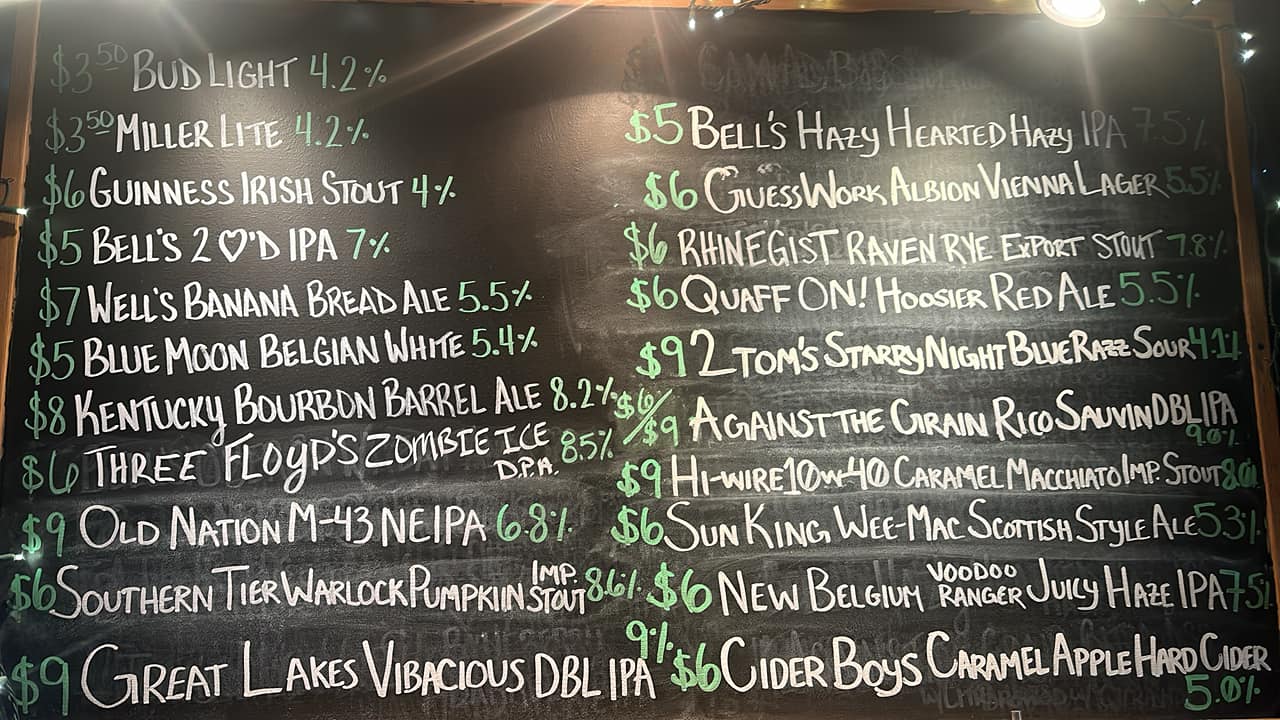 $3.50 BUD LIGHT 4.2%
$3.50 MILLER LITE 4.2%
$6 GUINNESS IRISH STOUT 4%
$5 BELL'S 2♡'D IPA 7%
$7 WELL'S BANANA BREAD ALE 5.5%
$5 BLUE MOON BELGIAN WHITE 5.4%
$8 KENTUCKY BOURBON BARREL ALE 8.2%
$6 THREE FLOYD'S ZOMBIE ICE D.P.A. 8.5%
$9 OLD NATION M-43 NEIPA 6.8%
$6 SOUTHERN TIER WARLOCK PUMPKIN IMP. STOUT 8.6%
$9 GREAT LAKES VIBACIOUS DBL IPA 9%
$5 BELL'S HAZY HEARTED HAZY IPA 7.5%
$6 GUESSWORK ALBION VIENNA LAGER 5.5%
$6 RHINEGIST RAVEN RYE EXPORT STOUT 7.8%
$6 QUAFF ON! HOOSIER RED ALE 5.5%
$9 2 TOM'S STARRY NIGHT BLUE RAZZ SOUR
$6/$9 AGAINST THE GRAIN RICO SAUVIN DBL IPA 9.0%
$9 HI-WIRE 10W-40 CARAMEL MACCHIATO IMP. STOUT
$6 SUN KING WEE-MAC SCOTTISH STYLE ALE 5.3%
$6 NEW BELGIUM VOODOO RANGER JUICY HAZE IPA 7.5%
$6 CIDER BOYS CARAMEL APPLE HARD CIDER 5.0%